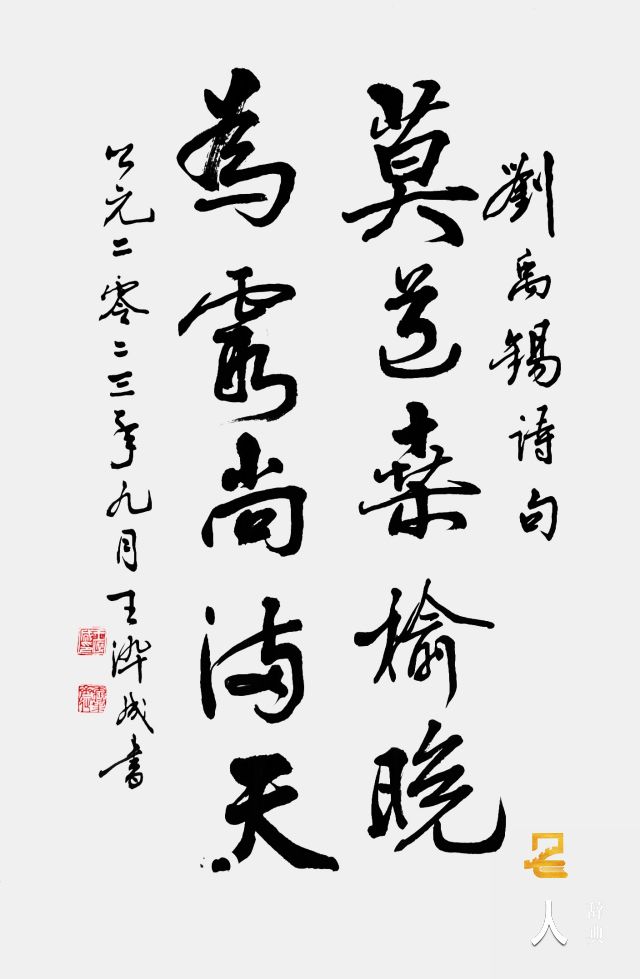 劉禹錫詩句
莫道桑榆晚
為霞尚满天
公元二零二三年九月王成書
人
辞典